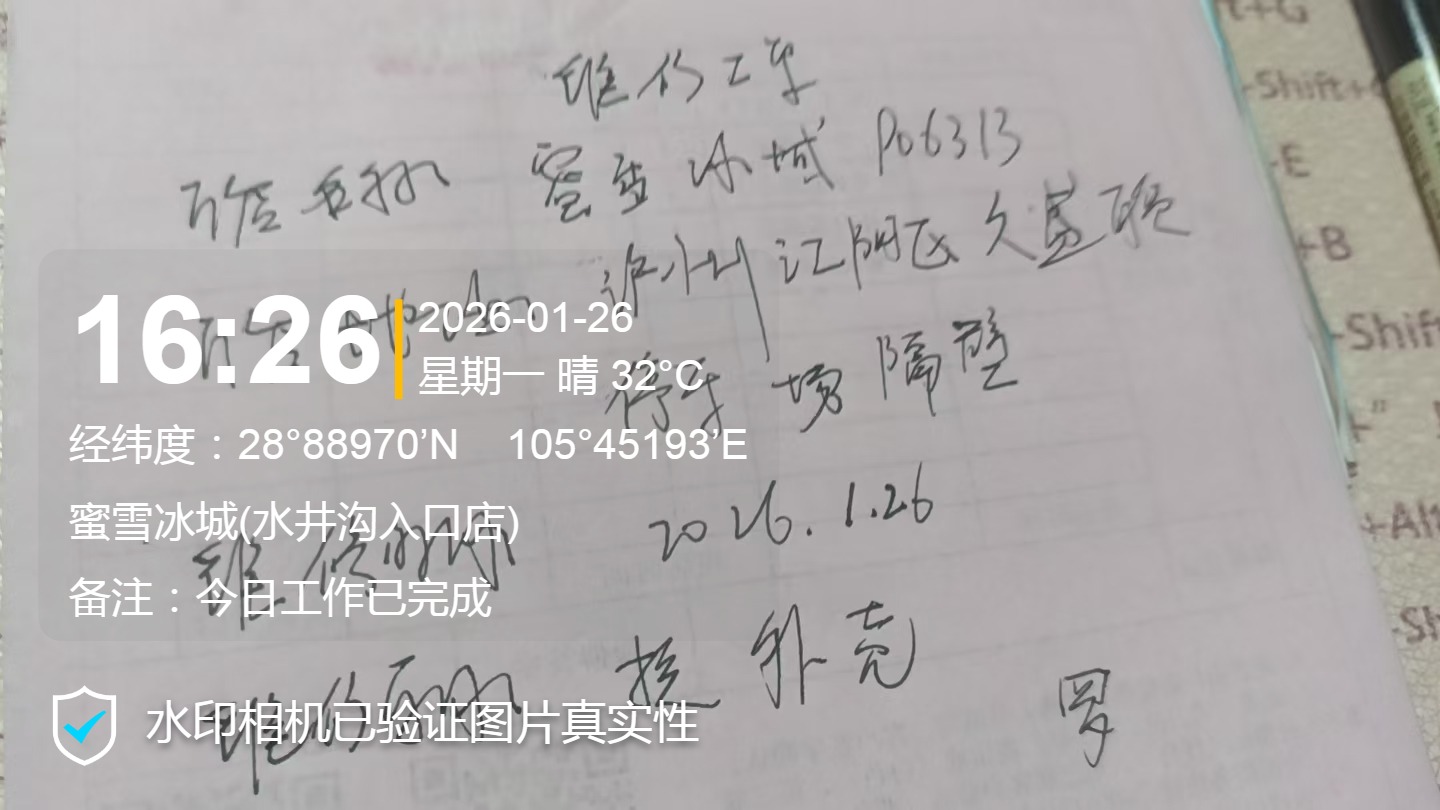 维修工单
门店名称 蜜雪冰城 P06313
门店地址 泸州江阳区
停车场隔壁
16:26
2026-01-26
星期一 晴 32°C
经纬度：28°88970’N 105°45193’E
蜜雪冰城(水井沟入口店)
备注：今日工作已完成
维修时间 2026.1.26
维修 换外壳
罗
水印相机已验证图片真实性
t+G
-Shift+
-E
+B
-Shift
+Alt
-Sh